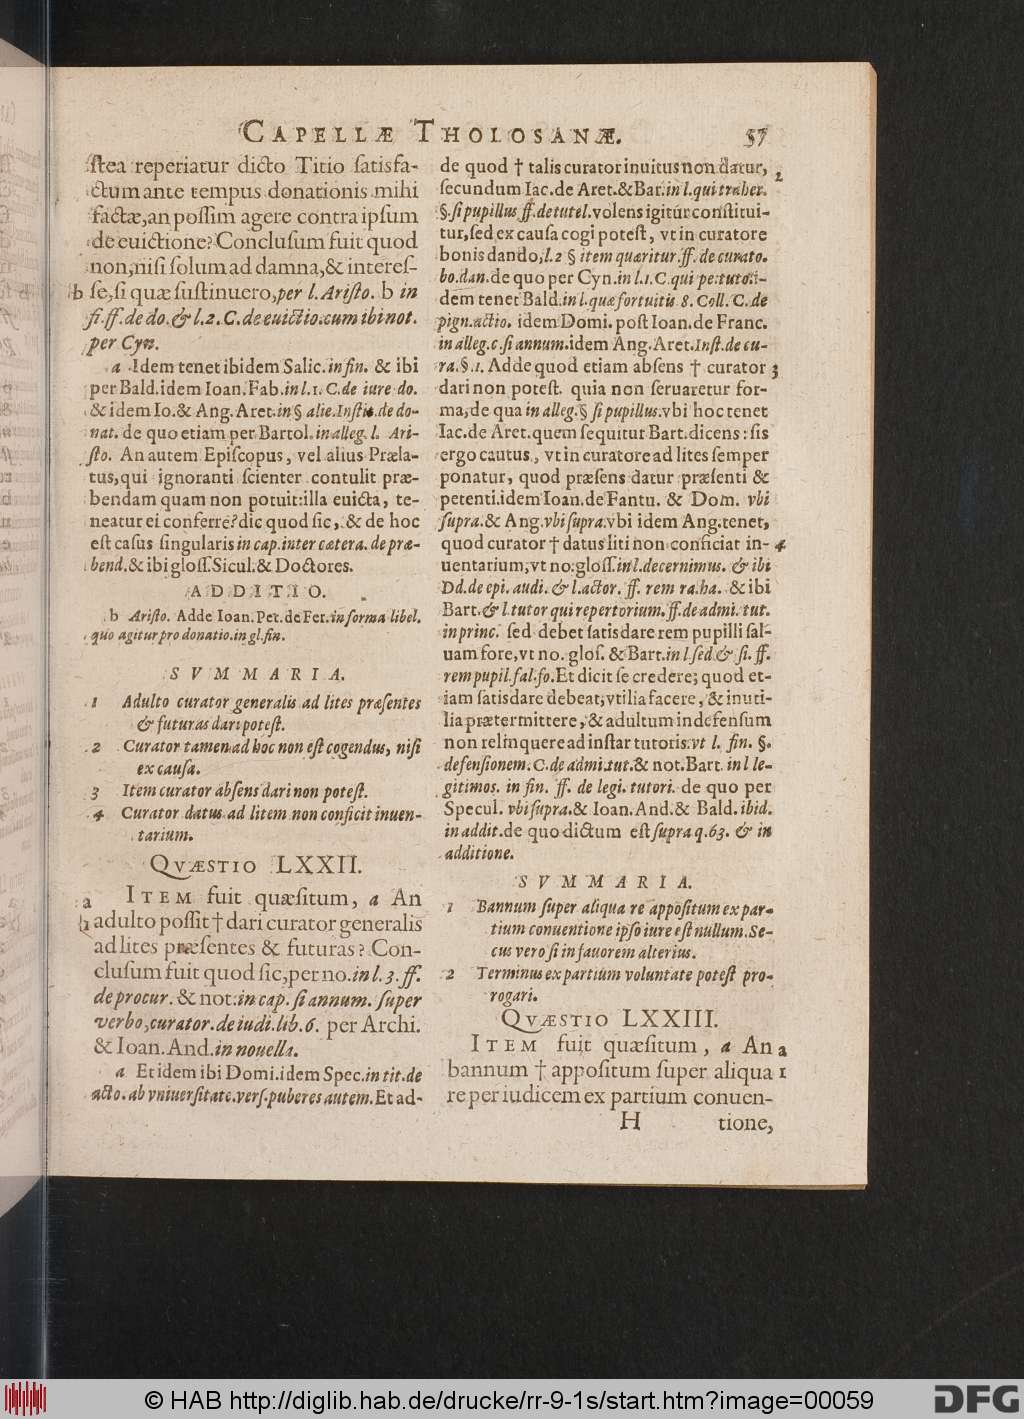 CAPELLÆ THOLOSANÆ. 57
ſtea reperiatur dicto Titio ſatisfa-
ctum ante tempus donationis mihi
factæ, an poſſim agere contra ipſum
de euictione? Concluſum fuit quod
non, niſi ſolum ad damna, & intereſ-
b ſe, ſi quæ ſuſtinuero, per l. Ariſto. b in
fi. ff. de do. & l. 2. C. de euictio. cum ibi not.
per Cyn.
a Idem tenet ibidem Salic. in fin. & ibi
per Bald. idem Ioan. Fab. in l. 1. C. de iure do.
& idem Io. & Ang. Aret. in § alie. Inſtit. de do-
nat. de quo etiam per Bartol. in alleg. l. Ari-
ſto. An autem Epiſcopus, vel alius Præla-
tus, qui ignoranti ſcienter contulit præ-
bendam quam non potuit: illa euicta, te-
neatur ei conferre? dic quod ſic, & de hoc
eſt caſus ſingularis in cap. inter cætera. de præ-
bend. & ibi gloſſ. Sicul. & Doctores.
ADDITIO.
b Ariſto. Adde Ioan. Pet. de Fer. in forma libel.
quo agitur pro donatio. in gl. fin.
SVMMARIA.
1 Adulto curator generalis ad lites præſentes
& futuras dari poteſt.
2 Curator tamen ad hoc non eſt cogendus, niſi
ex cauſa.
3 Item curator abſens dari non poteſt.
4 Curator datus ad litem non conficit inuen-
tarium.
QVÆSTIO LXXII.
a ITEM fuit quæſitum, a An
1 adulto poſſit † dari curator generalis
ad lites præſentes & futuras? Con-
cluſum fuit quod ſic, per no. in l. 3. ff.
de procur. & not. in cap. ſi annum. ſuper
verbo, curator. de iudi. lib. 6. per Archi.
& Ioan. And. in nouella.
a Et idem ibi Domi. idem Spec. in tit. de
acto. ab vniuerſitate. verſ. puberes autem. Et ad-
de quod † talis curator inuitus non datur, 2
ſecundum Iac. de Aret. & Bar. in l. qui traher.
§. ſi pupillus ff. de tutel. volens igitur conſtitui-
tur, ſed ex cauſa cogi poteſt, vt in curatore
bonis dando, l. 2 § item quæritur. ff. de curato.
bo. dan. de quo per Cyn. in l. 1. C. qui pe. tuto. i-
dem tenet Bald. in l. quæ fortuitis 8. Coll. C. de
pign. actio. idem Domi. poſt Ioan. de Franc.
in alleg. c. ſi annum. idem Ang. Aret. Inſt. de cu-
ra. §. 1. Adde quod etiam abſens † curator 3
dari non poteſt. quia non ſeruaretur for-
ma, de qua in alleg. § ſi pupillus. vbi hoc tenet
Iac. de Aret. quem ſequitur Bart. dicens: ſis
ergo cautus, vt in curatore ad lites ſemper
ponatur, quod præſens datur præſenti &
petenti. idem Ioan. de Fantu. & Dom. vbi
ſupra. & Ang. vbi ſupra. vbi idem Ang. tenet,
quod curator † datus liti non conficiat in- 4
uentarium, vt no. gloſſ. in l. decernimus. & ibi
Dd. de epi. audi. & l. actor. ff. rem ra. ha. & ibi
Bart. & l. tutor qui repertorium. ff. de admi. tut.
in princ. ſed debet ſatis dare rem pupilli ſal-
uam fore, vt no. gloſ. & Bart. in l ſed & ſi. ff.
rem pupil. ſal. fo. Et dicit ſe credere; quod et-
iam ſatisdare debeat, vtilia facere, & inuti-
lia prætermittere, & adultum indefenſum
non relinquere ad inſtar tutoris. vt l. fin. §.
defenſionem. C. de admi. tut. & not. Bart. in l le-
gitimos. in fin. ff. de legi. tutori. de quo per
Specul. vbi ſupra. & Ioan. And. & Bald. ibid.
in addit. de quo dictum eſt ſupra q. 63. & in
additione.
SVMMARIA.
1 Bannum ſuper aliqua re appoſitum ex par-
tium conuentione ipſo iure eſt nullum. Se-
cus vero ſi in fauorem alterius.
2 Terminus ex partium voluntate poteſt pro-
rogari.
QVÆSTIO LXXIII.
ITEM fuit quæſitum, a An a
bannum † appoſitum ſuper aliqua 1
re per iudicem ex partium conuen-
H tione,
© HAB http://diglib.hab.de/drucke/rr-9-1s/start.htm?image=00059
DFG